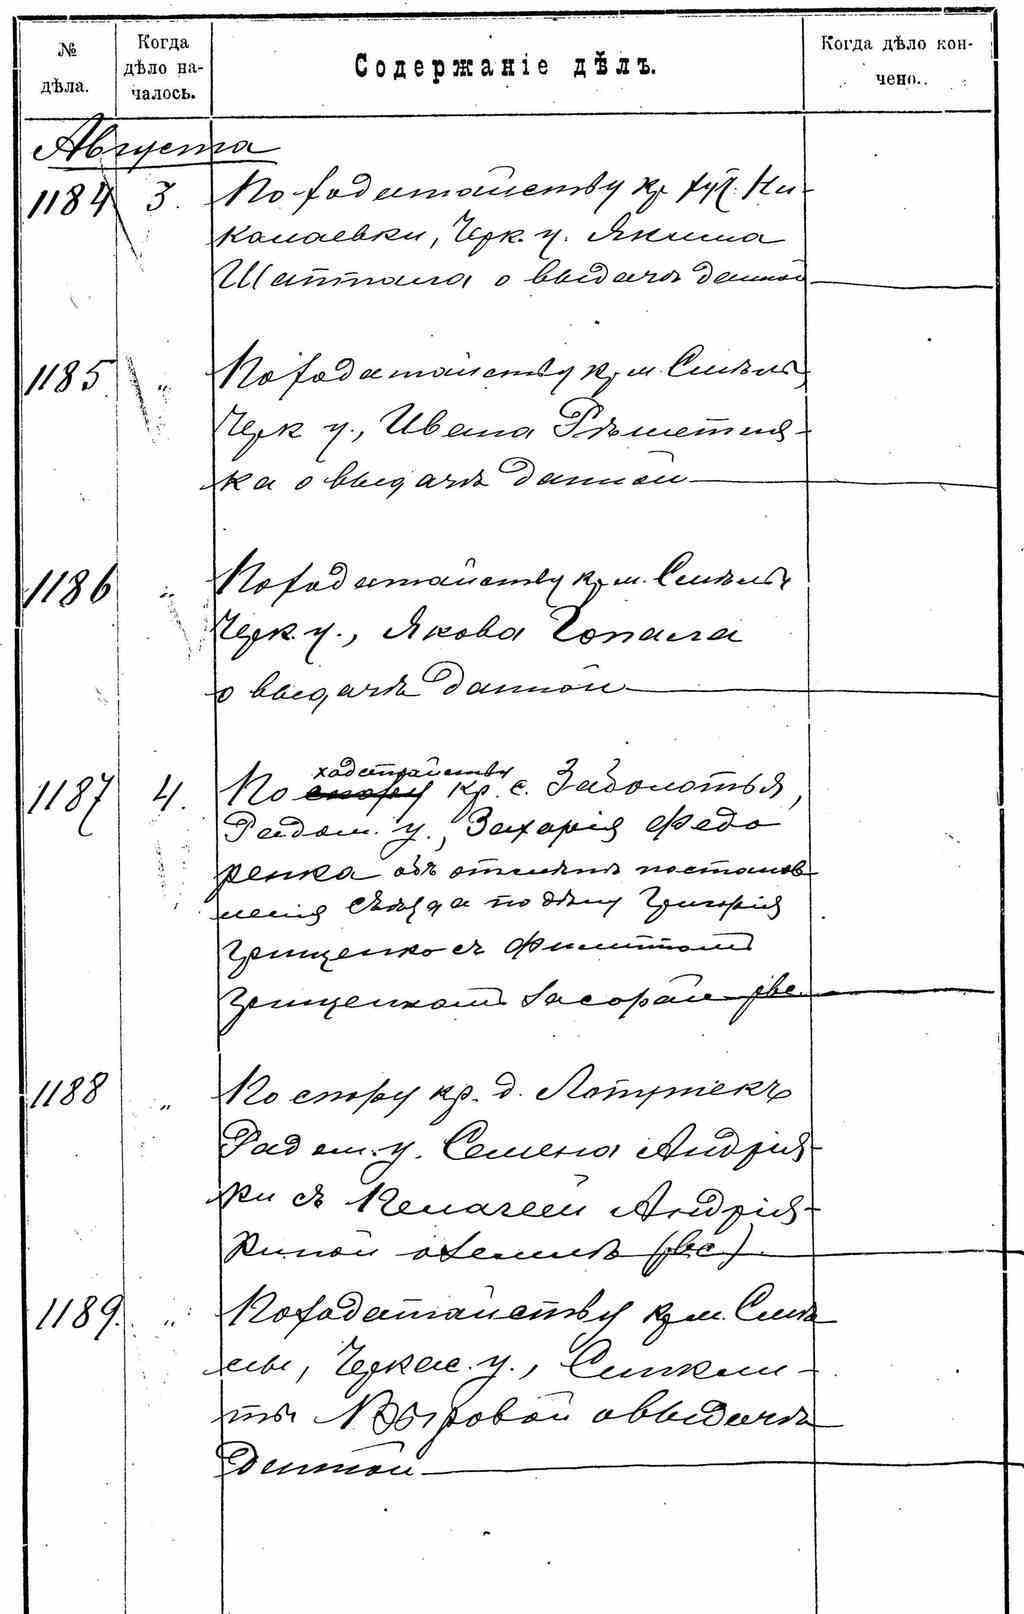 № дѣла.
Когда дѣло на-чалось.
Содержаніе дѣлъ.
Когда дѣло кон-чено.
Августа
1184 3. По ходатайству кр. хут. Ни-
колаевки, Черк. у. Якима
Шаптала о выдачѣ данной
1185 „ По ходатайству кр. м. Смѣлы,
Черк у., Ивана Рѣшетня-
ка о выдачѣ данной
1186 „ По ходатайству кр. м. Смѣлы
Черк. у., Якова Гопала
о выдачѣ данной
1187 4. По ходатайству спору кр. с. Заболотья,
Радом. у., Захарія Федо
ренка объ отмѣнѣ постанов
ленія съѣзда по дѣлу Григорія
Грищенко съ Филиппом
Грищенком
1188 „ По спору кр. д.
Радом. у. Семена Андрія-
ки съ Андрія-
киной о землѣ
1189. „ По ходатайству кр. м. Смѣ
лы, Черкас. у.,
о выдачѣ
данной